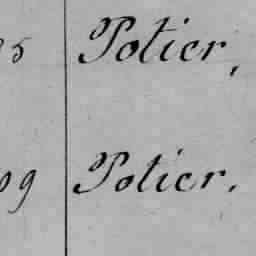 5 Potier,
09 Potier.